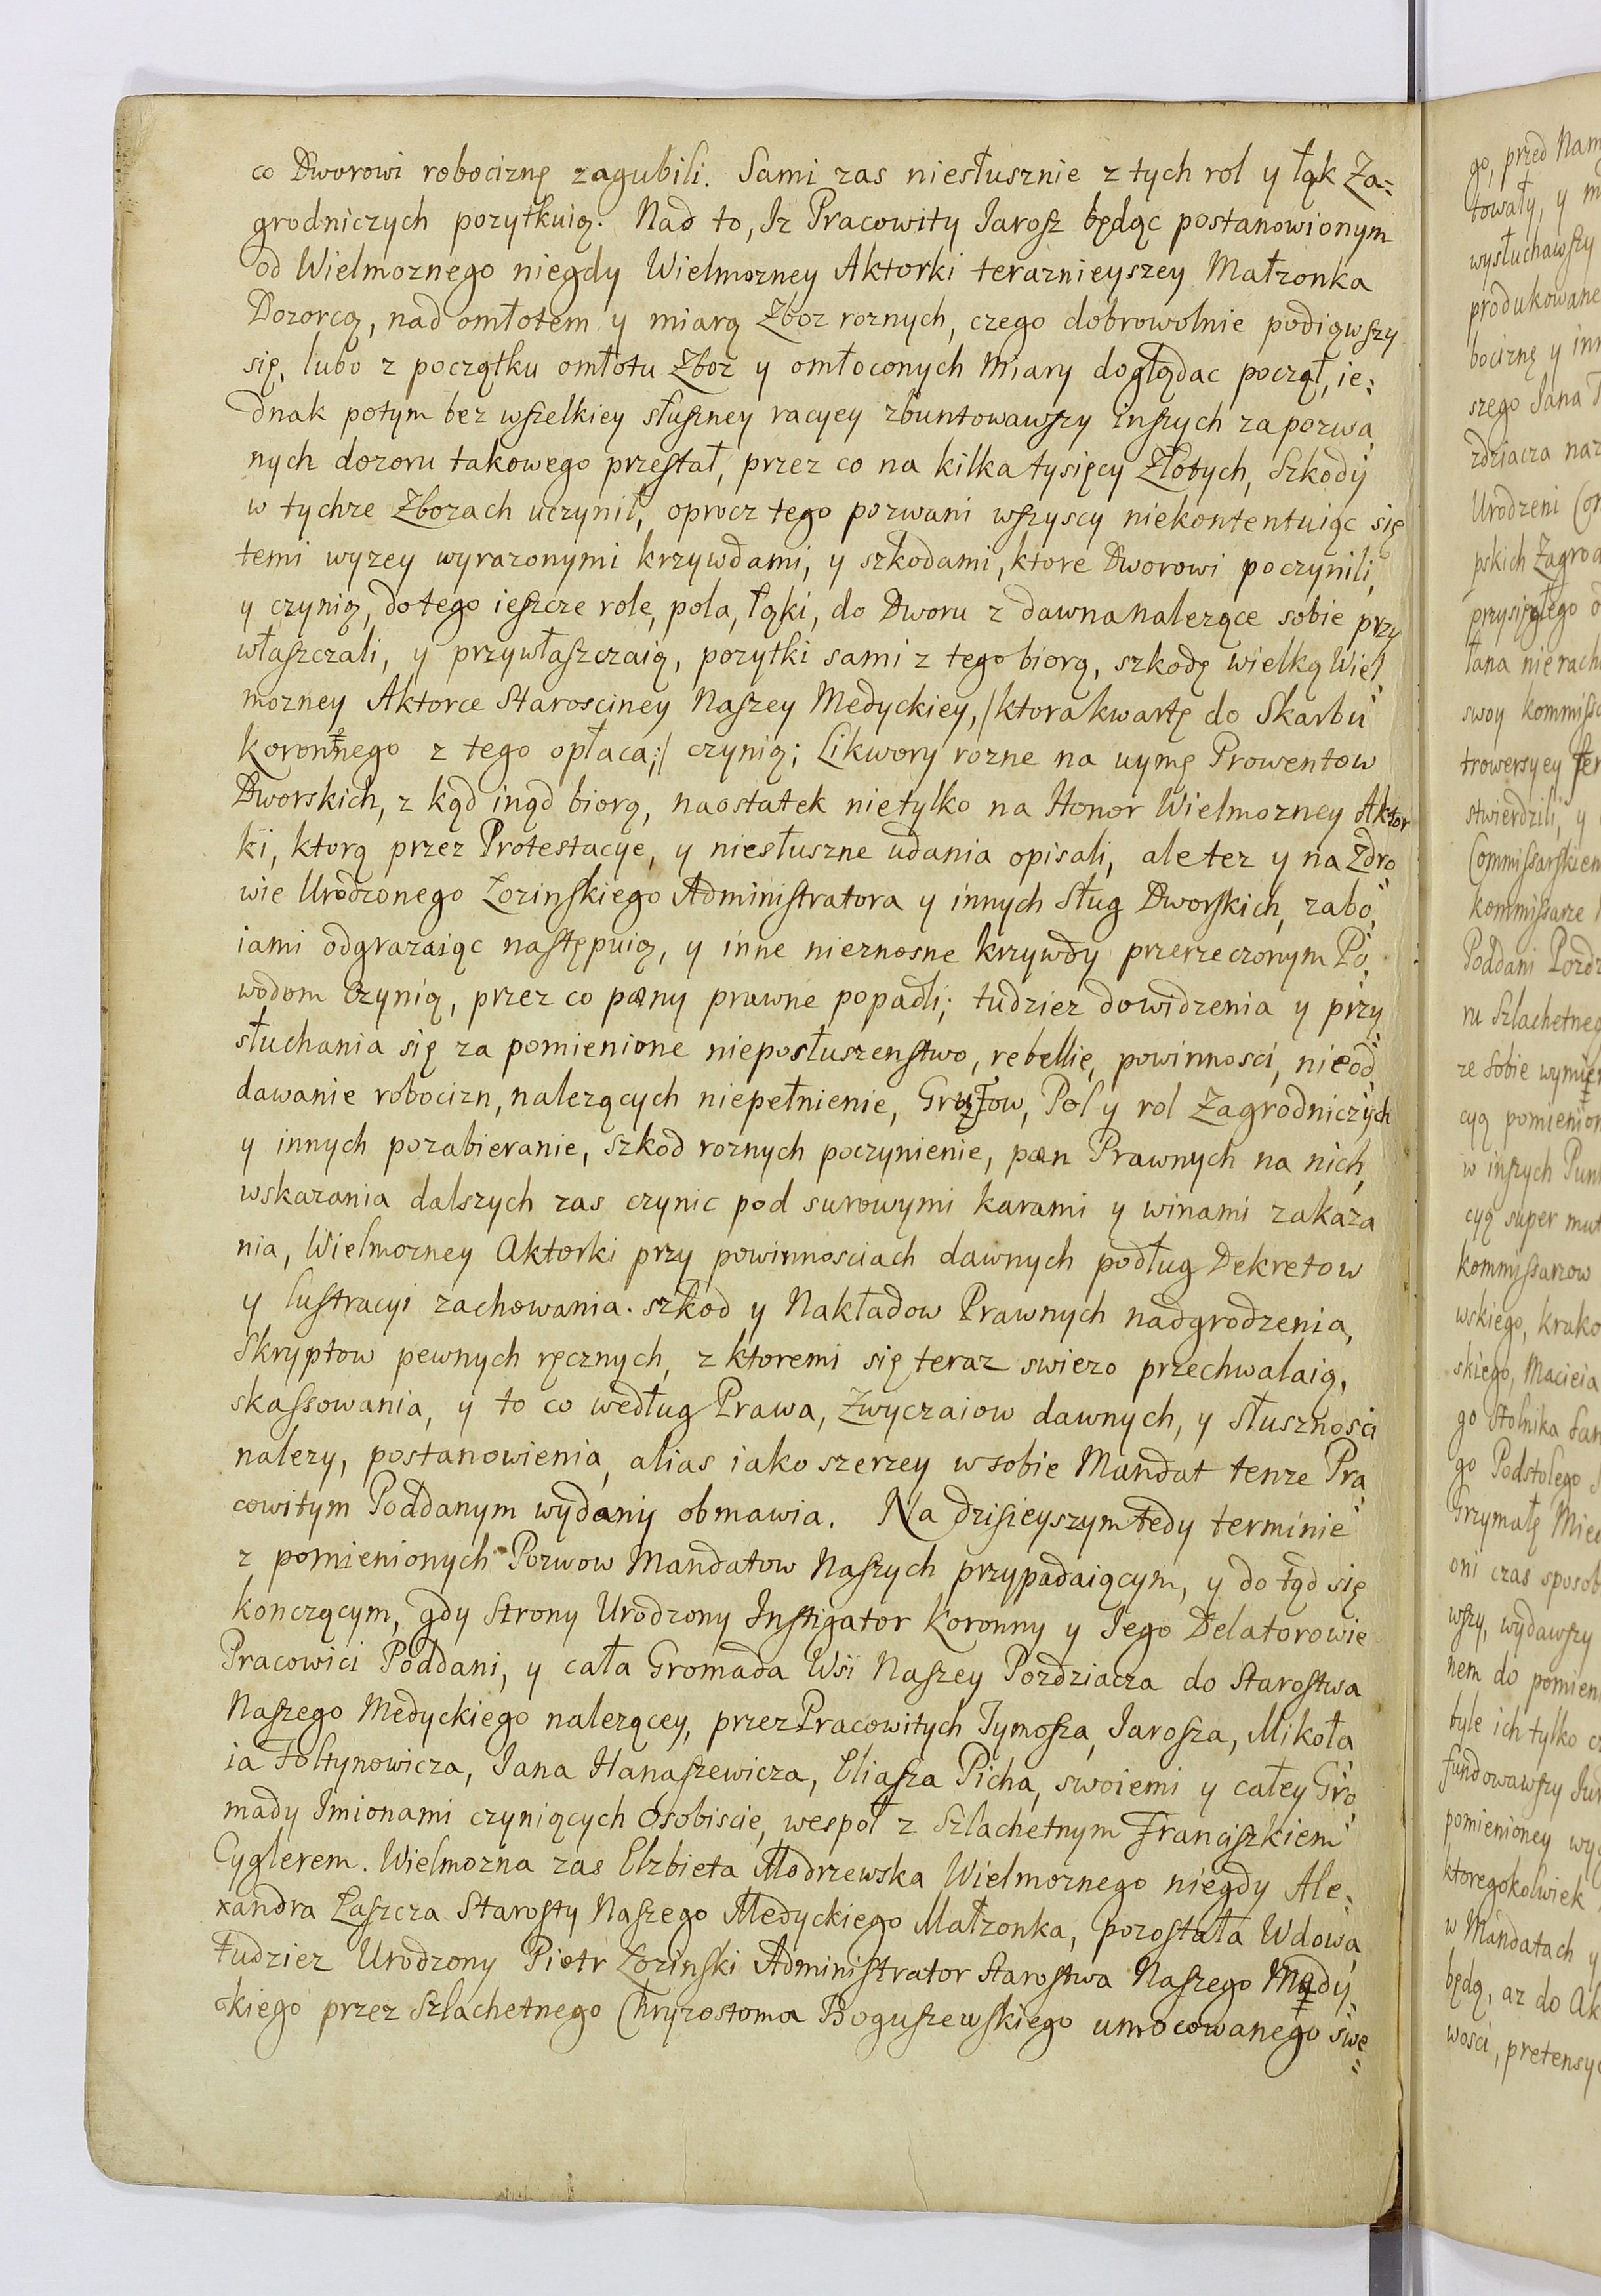 co Dworowi robociznę zagubili. Sami zas niesłusznie z tych rol y łąk Za=
grodniczych pozytkuią. Nad to, Iz Pracowity Iarosz będąc postanowionym
od Wielmoznego niegdy Wielmozney Aktorki teraznieyszey Małzonka
Dozorcą, nad omłotem y miarą Zboz roznych, czego dobrowolnie podiąwszy
się, lubo z początku omłotu Zboz y omłoconych Miary doglądac począł, ie=
dnak potym bez wszelkiey słuszney racyey zbuntowawszy inszych zapozwa
nych dozoru takowego przestał, przez co na kilka tysięcy Złotych, Szkody
w tychze Zbozach uczynił, oprocz tego pozwani wszyscy niekontentuiąc się
temi wyzey wyrazonymi krzywdami, y szkodami, ktore Dworowi poczynili,
y czynią, do tego ieszcze role, pola, łąki, do Dworu z dawna nalezące sobie przy
właszczali, y przywłaszczaią, pozytki sami z tego biorą, szkodę wielką Wiel
mozney Aktorce Starosciney Naszey Medyckiey, /ktora kwartę do Skarbu
koronnego z tego opłaca;/ czynią; Likwory rozne na uymę Prowentow
Dworskich, z kąd inąd biorą, naostatek nietylko na Honor Wielmozney Aktor
ki, ktorą przez Protestacye, y niesłuszne udania opisali, ale tez y na Zdro
wie Urodzonego Łozinskiego Administratora y innych Sług Dworskich, zabo
iami odgrazaiąc następuią, y inne nieznosne krzywdy przerzeczonym Po
wodom czynią, przez co pæny prawne popadli; tudziez do widzenia y przy
słuchania się za pomienione nieposłuszenstwo, rebellie, powinnosci, nieod
dawanie robocizn, nalezących niepełnienie, Gruztow, Pol y rol Zagrodniczych
y innych pozabieranie, szkod roznych poczynienie, pæn Prawnych na nich,
wskazania dalszych zas czynic pod surowymi karami y winami zakaza
nia, Wielmozney Aktorki przy powinnosciach dawnych podług Dekretow
y lustracyi zachowania. szkod y Nakładow Prawnych nadgrodzenia,
Skryptow pewnych ręcznych, z ktoremi się teraz swiezo przechwalaią,
skassowania, y to co według Prawa, Zwyczaiow dawnych, y słusznosci
nalezy, postanowienia, alias iako szerzey w sobie Mandat tenze Pra
cowitym Poddanym wydany obmawia. Na dzisieyszym tedy terminie
z pomienionych Pozwow Mandatow Naszych przypadaiącym, y do tąd się
konczącym, gdy Strony Urodzony Instigator Koronny y Iego Delatorowie
Pracowici Poddani, y cała Gromada Wsi Naszey Pozdziacza do Starostwa
Naszego Medyckiego nalezącey, przez Pracowitych Tymosza, Iarosza, Mikoła
ia Fołtynowicza, Iana Hanaszewicza, Eliasza Picha, swoiemi y całey Gro
mady Imionami czyniących Osobiscie, wespoł z Szlachetnym Franciszkiem
Cyglerem. Wielmozna zas Elzbieta Modrzewska Wielmoznego niegdy Ale=
xandra Łaszcza Starosty Naszego Medyckiego Małzonka, pozostała Wdowa
Tudziez Urodzony Piotr Łozinski Administrator Starostwa Naszego Medy
ckiego przez Szlachetnego Chryzostoma Boguszewskiego umocowanego swe
go, przed Nam
towały, y
wysłuchawszy
produkowane
bociznę y inn
szego Iana
zdziacza
Urodzeni
pskich Zagrod
przysięgłego
łana nierach
swoy kommiss
trowersyey
stwierdzili, y
Commissarskiem
kommissarze
Poddani Pozdz
ru Szlachetneg
ze sobie
cyą pomienion
w inszych Pun
cyą super mut
kommissarzow
wskiego, krako
skiego, Macieia
go Stolnika
go Podstolego
Grzymałę Miec
oni czas sposob
wszy, wydawszy
nem do pomien
byle ich tylko
fundowawszy Iur
pomienioney wy
ktoregokolwiek
w Mandatach y
będą, az do Ak
wosci, pretensy